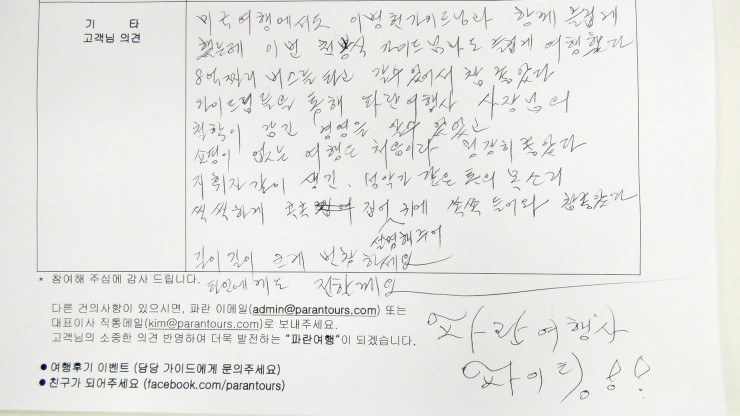 기 타
고객님 의견
미국여행에서도 이병헌가이드님과 함께 즐겁게
했는데 이번 가이드님과도 즐겁게 여행했다
8억짜리 버스를 타고 갈수 있어서 참 좋았다
가이드님들을 통해 파란여행사 사장님의
철학이 담긴 경영을 알수 있었고
쇼핑이 없는 여행은 처음이라 굉장히 좋았다
지휘자같이 생긴, 성악가 같은 톤의 목소리
씩씩하게 콕콕 집어 설명해주어 귀에 쏙쏙 들어와 참 좋았다
길이길이 크게 번창하세요
타인에게도 전할께요
* 참여해 주심에 감사 드립니다.
다른 건의사항이 있으시면, 파란 이메일(admin@parantours.com) 또는
대표이사 직통메일(kim@parantours.com)로 보내주세요.
고객님의 소중한 의견 반영하여 더욱 발전하는 "파란여행"이 되겠습니다.
파란여행사
파이팅!!
● 여행후기 이벤트 (담당 가이드에게 문의주세요)
● 친구가 되어주세요 (facebook.com/parantours)